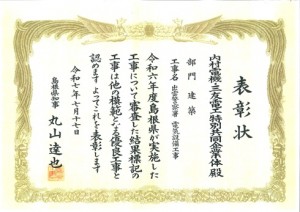 表彰状
内村電機・三友電工特別共同企業体殿
部門 建築
工事名 出雲警察署 電気設備工事
令和六年度島根県が実施した
工事について審査した結果標記の
工事は他の模範となる優良工事と
認めます よってこれを表彰します
令和七年七月十七日
島根県知事 丸山達也